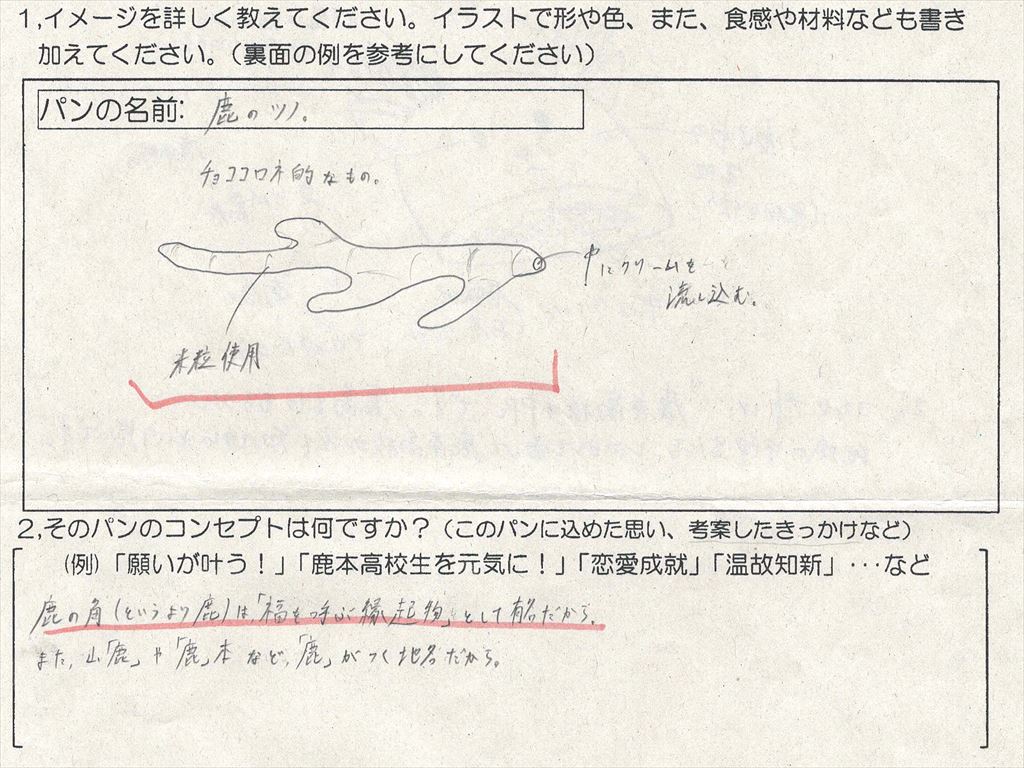 1,イメージを詳しく教えてください。イラストで形や色、また、食感や材料なども書き
加えてください。（裏面の例を参考にしてください）
パンの名前: 鹿のツノ。
チョココロネ的なもの。
中にクリームを
流し込む。
米粒使用
2,そのパンのコンセプトは何ですか？（このパンに込めた思い、考案したきっかけなど）
(例)「願いが叶う！」「鹿本高校生を元気に！」「恋愛成就」「温故知新」・・・など
鹿の角(というより鹿)は、「福を呼ぶ縁起物」として有名だから。
また、山「鹿」や「鹿」本など、「鹿」がつく地名だから。